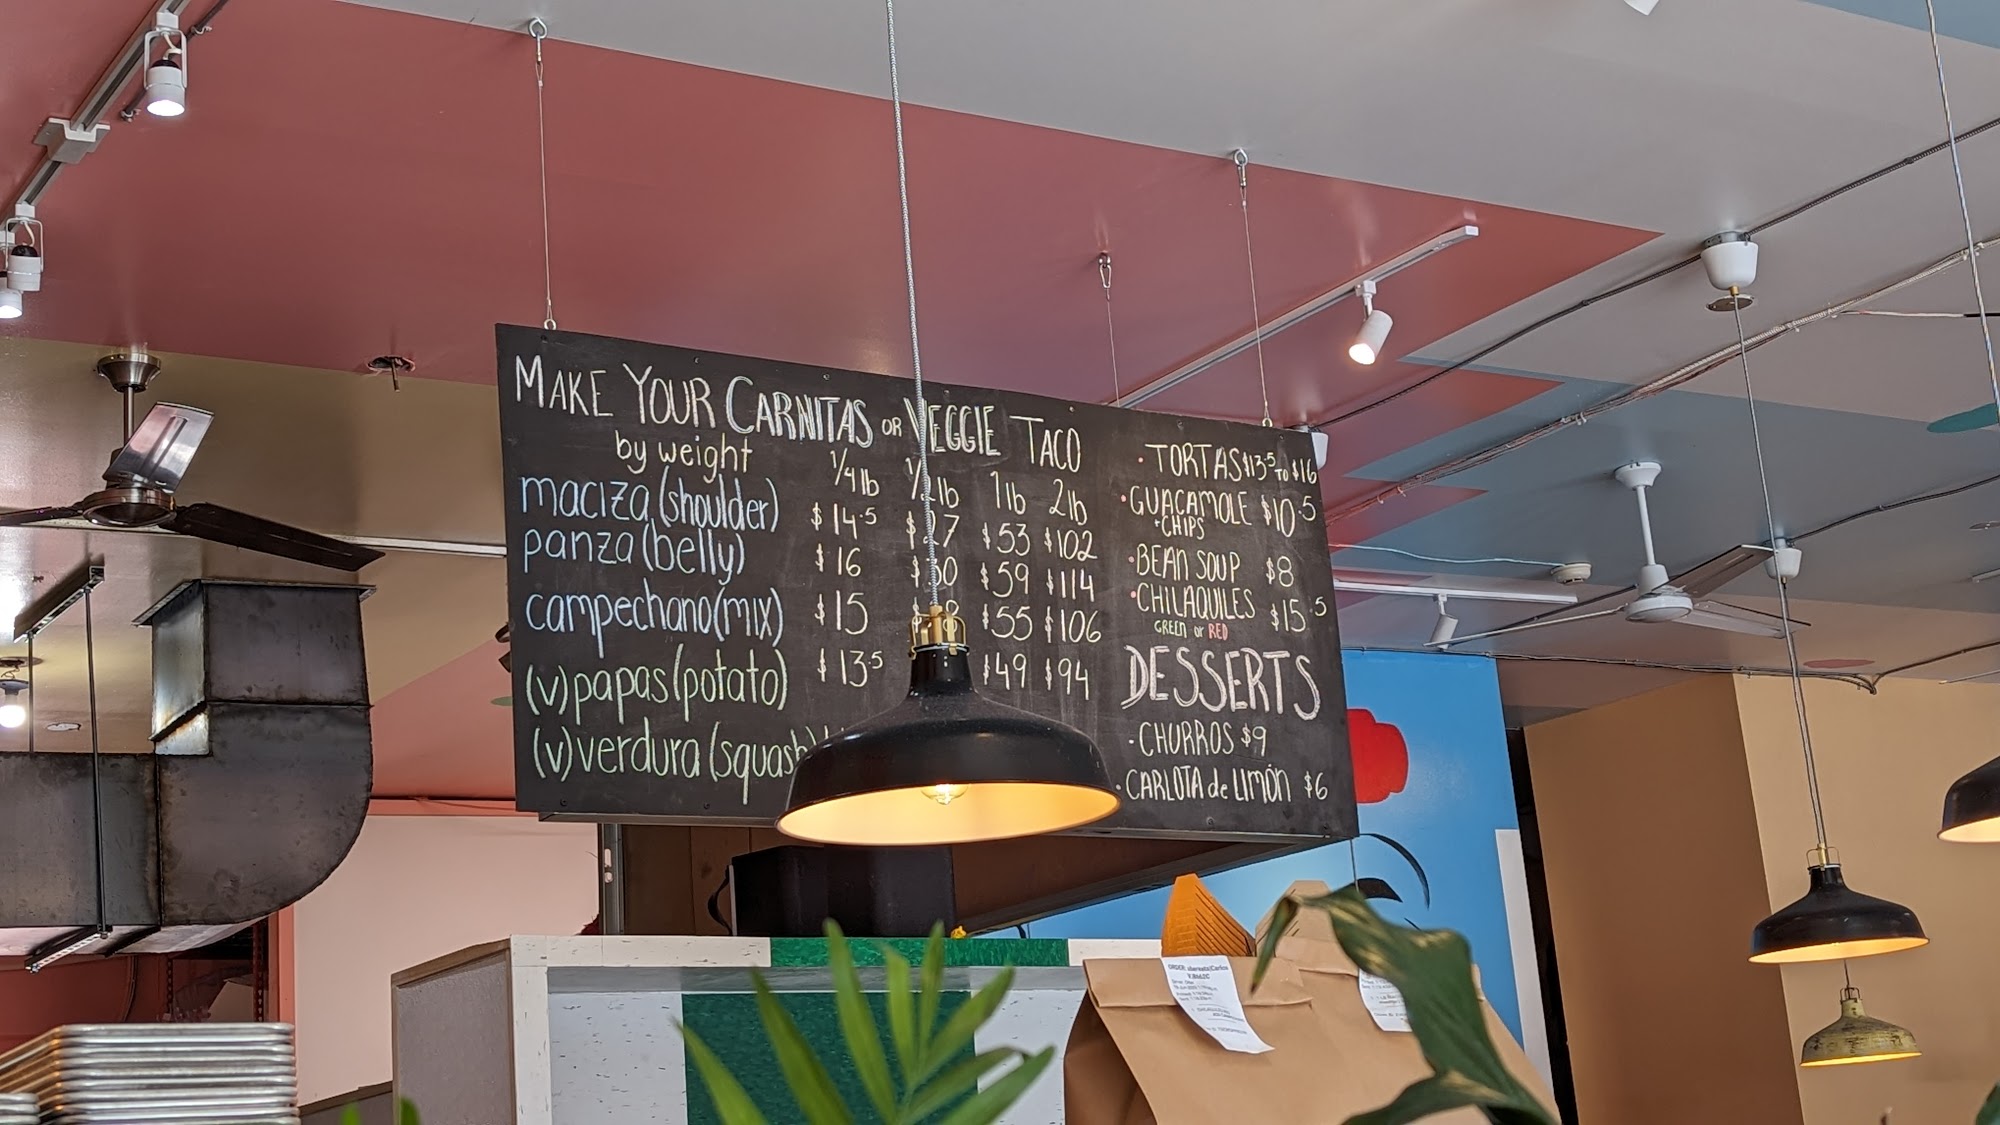 MAKE YOUR CARNITAS OR VEGGIE TACO
by weight 1/4 lb lb 1 lb 2 lb
maciza (shoulder) $14.5 $27 $53 $102
panza (belly) $16 $59 $114
campechano (mix) $15 $55 $106
(v) papas (potato) $13.5 $49 $94
(v) verdura (squash)
• TORTAS $13.5 TO $16
• GUACAMOLE $10.5
+CHIPS
• BEAN SOUP $8
• CHILAQUILES $15.5
GREEN or RED
DESSERTS
• CHURROS $9
• CARLOTA de LIMÓN $6